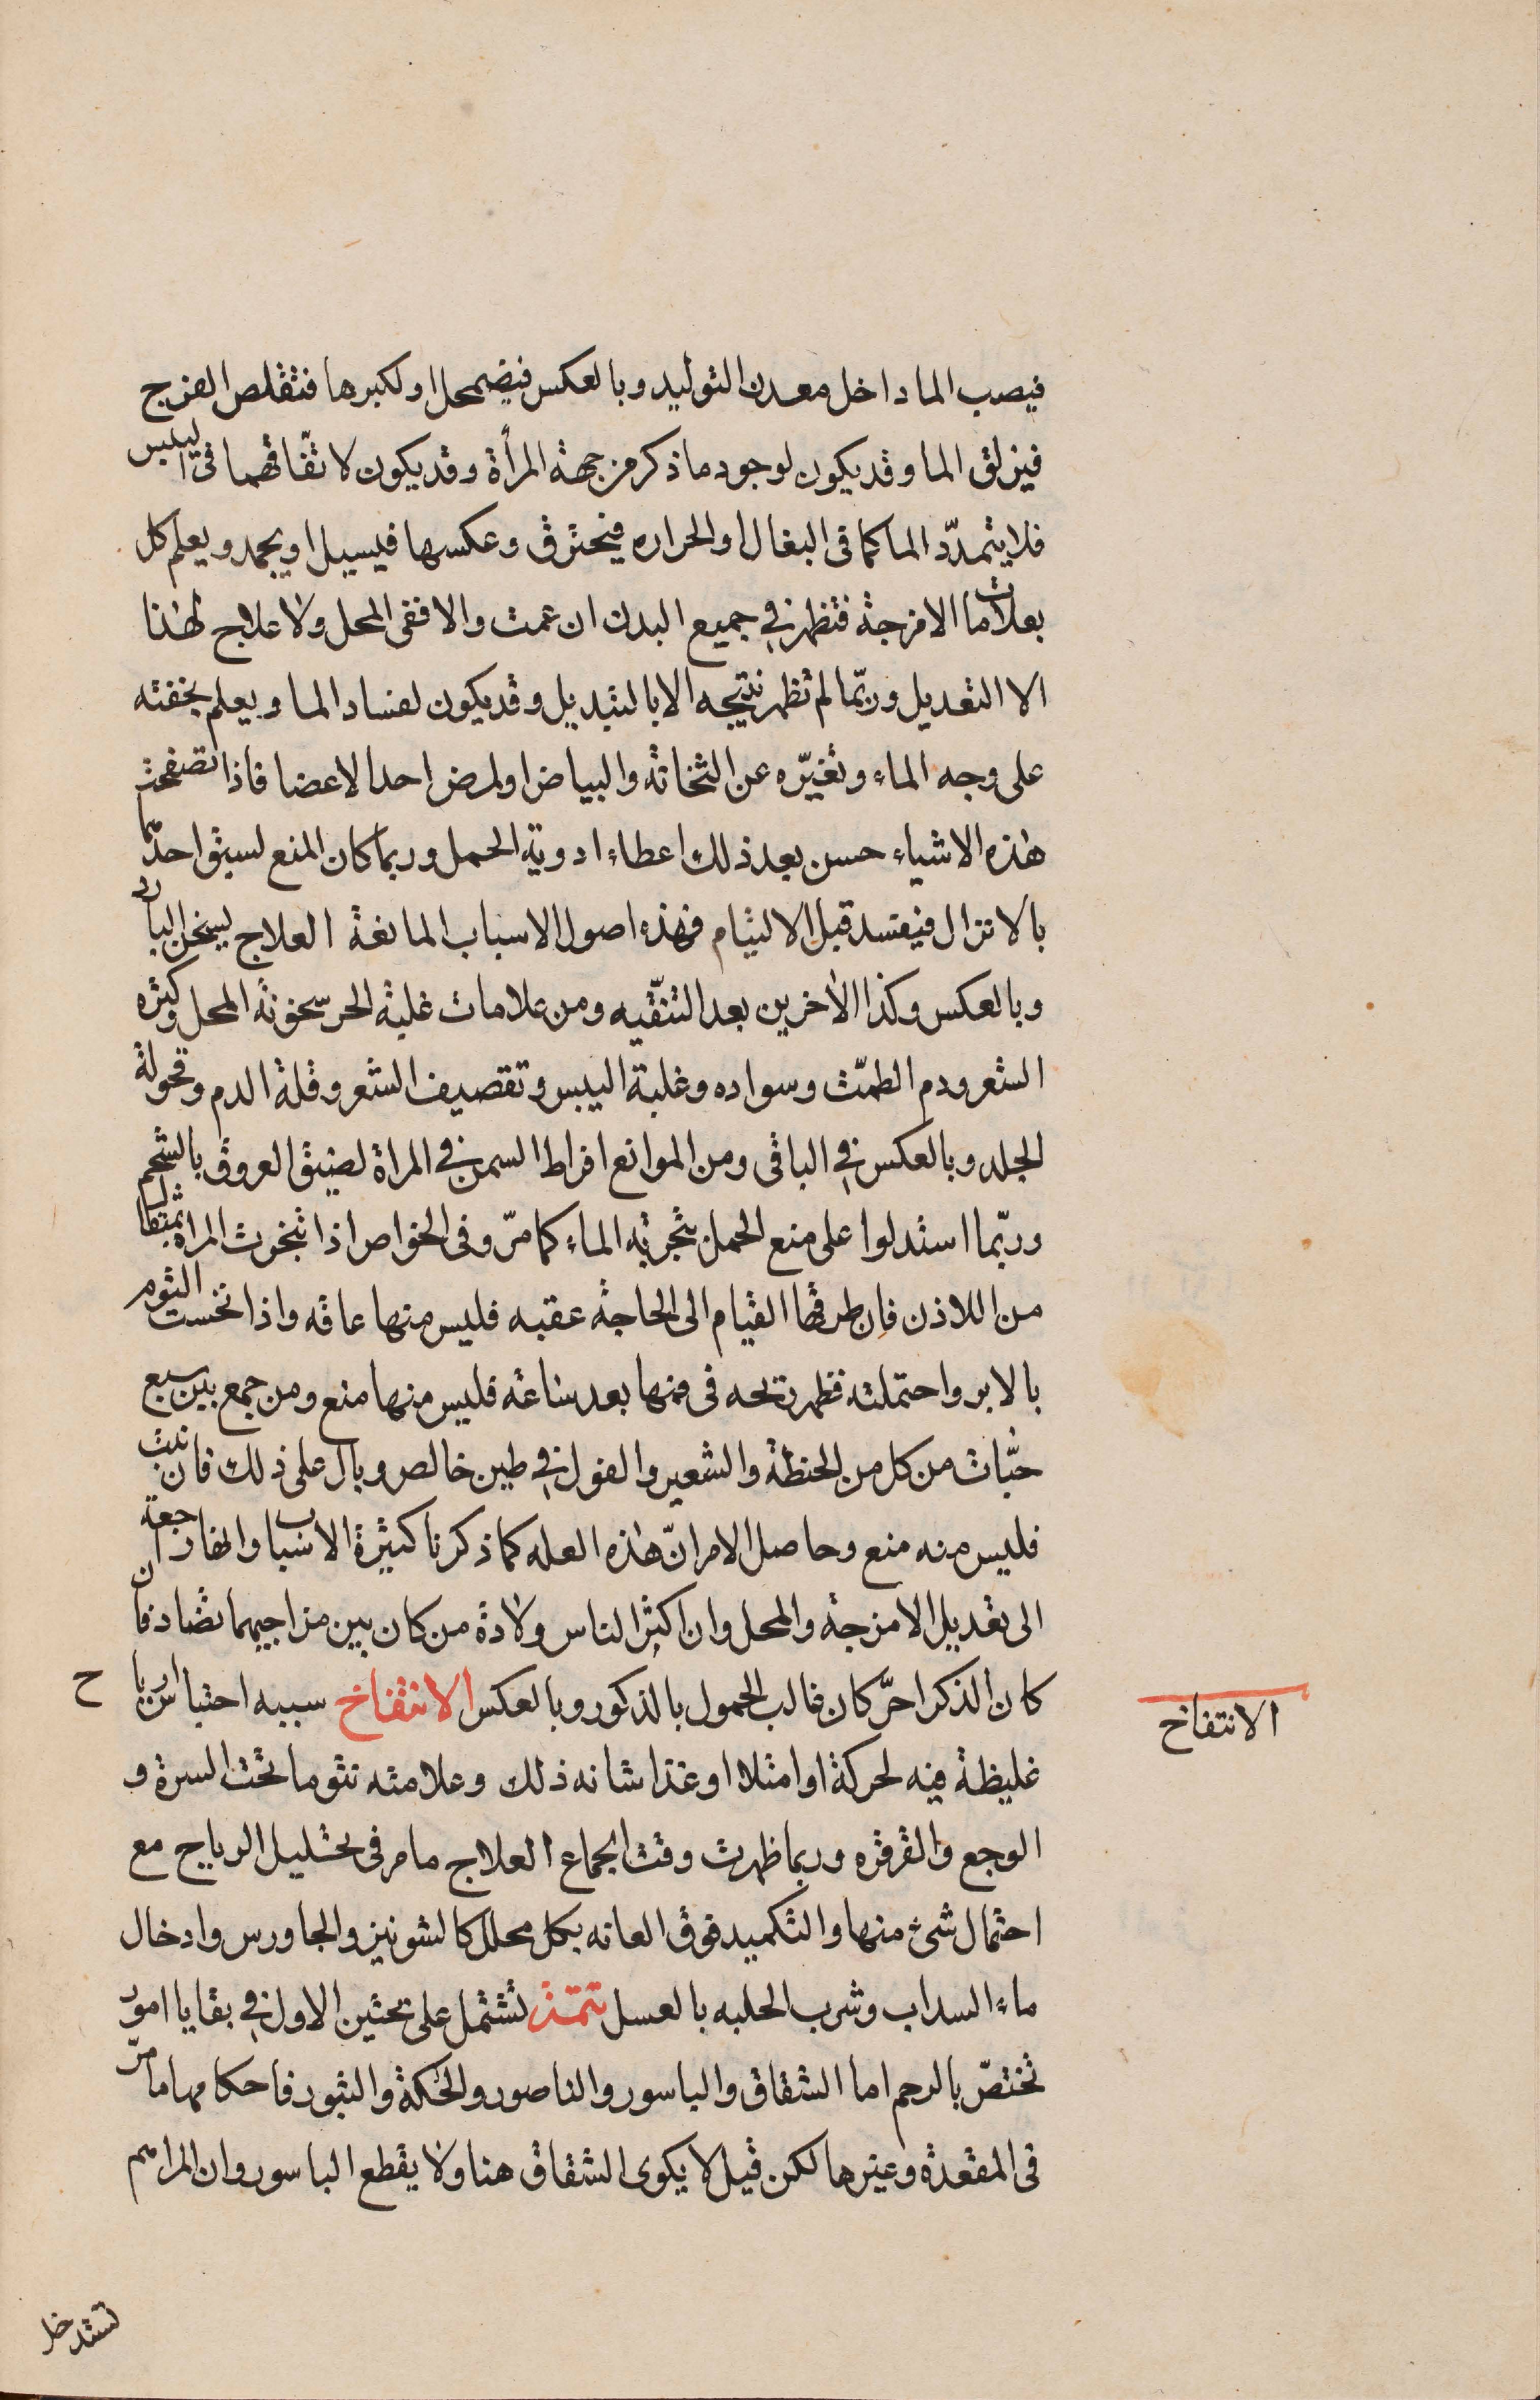 فيصب الما داخل معدن التوليد وبالعكس فيضمحل او لكبرها فتتقلص الفرج
فيزلق الما وقد يكون لوجود ما ذكر من جهة المرأة وقد يكون لاتفاقهما فى اليبس
فلا يتمدّد الما كما فى البغال او الحراره فيحترق وعكسها فيسيل او يجمد ويعلم كل
بعلامات الامزجة فتظهر في جميع البدن ان عمت والا ففى المحل ولا علاج لهذا
الا التعديل وربّما لم تظهر نتيجه الا بالتبديل وقد يكون لفساد الما ويعلم بخفته
على وجه الماء وتغيّره عن الثخانة والبياض او لمرض احد الاعضا فاذا تصفحت
هذه الاشياء حسن بعد ذلك اعطاء ادوية الحمل وربما كان المنع لسبق احدهما
بالانزال فيفسد قبل الالتيام فهذه اصول الاسباب المانعة العلاج يسخن البارد
وبالعكس وكذا الأخرين بعد التنقّيه ومن علامات غلبة الحر سخونة المحل وكثره
الشعر ودم الطمث وسواده وغلبة اليبس وتقصيف الشعر وقلة الدم وقحولة
الجلد وبالعكس في الباقى ومن الموانع افراط السمن في المراة لضيق العروق بالشحم
وربّما استدلوا على منع الحمل بتجربة الماء كما مرّ وفى الخواص اذا تبخرت المراة بمثقال
من اللاذن فان طرقها القيام الى الحاجة عقبه فليس منها عاقه واذا نخست الثوم
بالابر واحتملته فظهر ريحه فى فمها بعد ساعة فليس منها منع ومن جمع بين سبع
حبّات من كل من الحنطة والشعير والفول في طين خالص وبال على ذلك فان نبت
فليس منه منع وحاصل الامر انّ هذه العله كما ذكرنا كثيرة الاسباب وانها راجعة
الى تعديل الامزجة والمحل وان اكثر الناس ولادة من كان بين مزاجيهما تضاد فان
كان الذكر احرّ كان غالب الحمول بالذكور وبالعكس الانتفاخ سببه احتباس ارياح
الانتفاخ
غليظة فيه لحركة او امتلا او غذا شانه ذلك وعلامته نتو ما تحت السرة و
الوجع والقرقره وربما ظهرت وقت الجماع العلاج ما مر فى تحليل الرياح مع
احتمال شئ منها والتكميد فوق العانه بكل محلل كالشونيز والجاورس وادخال
ماء السداب وشرب الحلبه بالعسل تتمة تشتمل على بحثين الاول في بقايا امور
تختصّ بالرحم اما الشقاق والباسور والناصور والحكة والبثور فاحكامها ما مرّ
فى المقعدة وغيرها لكن قيل لا يكوى الشقاق هنا ولا يقطع الباسور وان المراهم